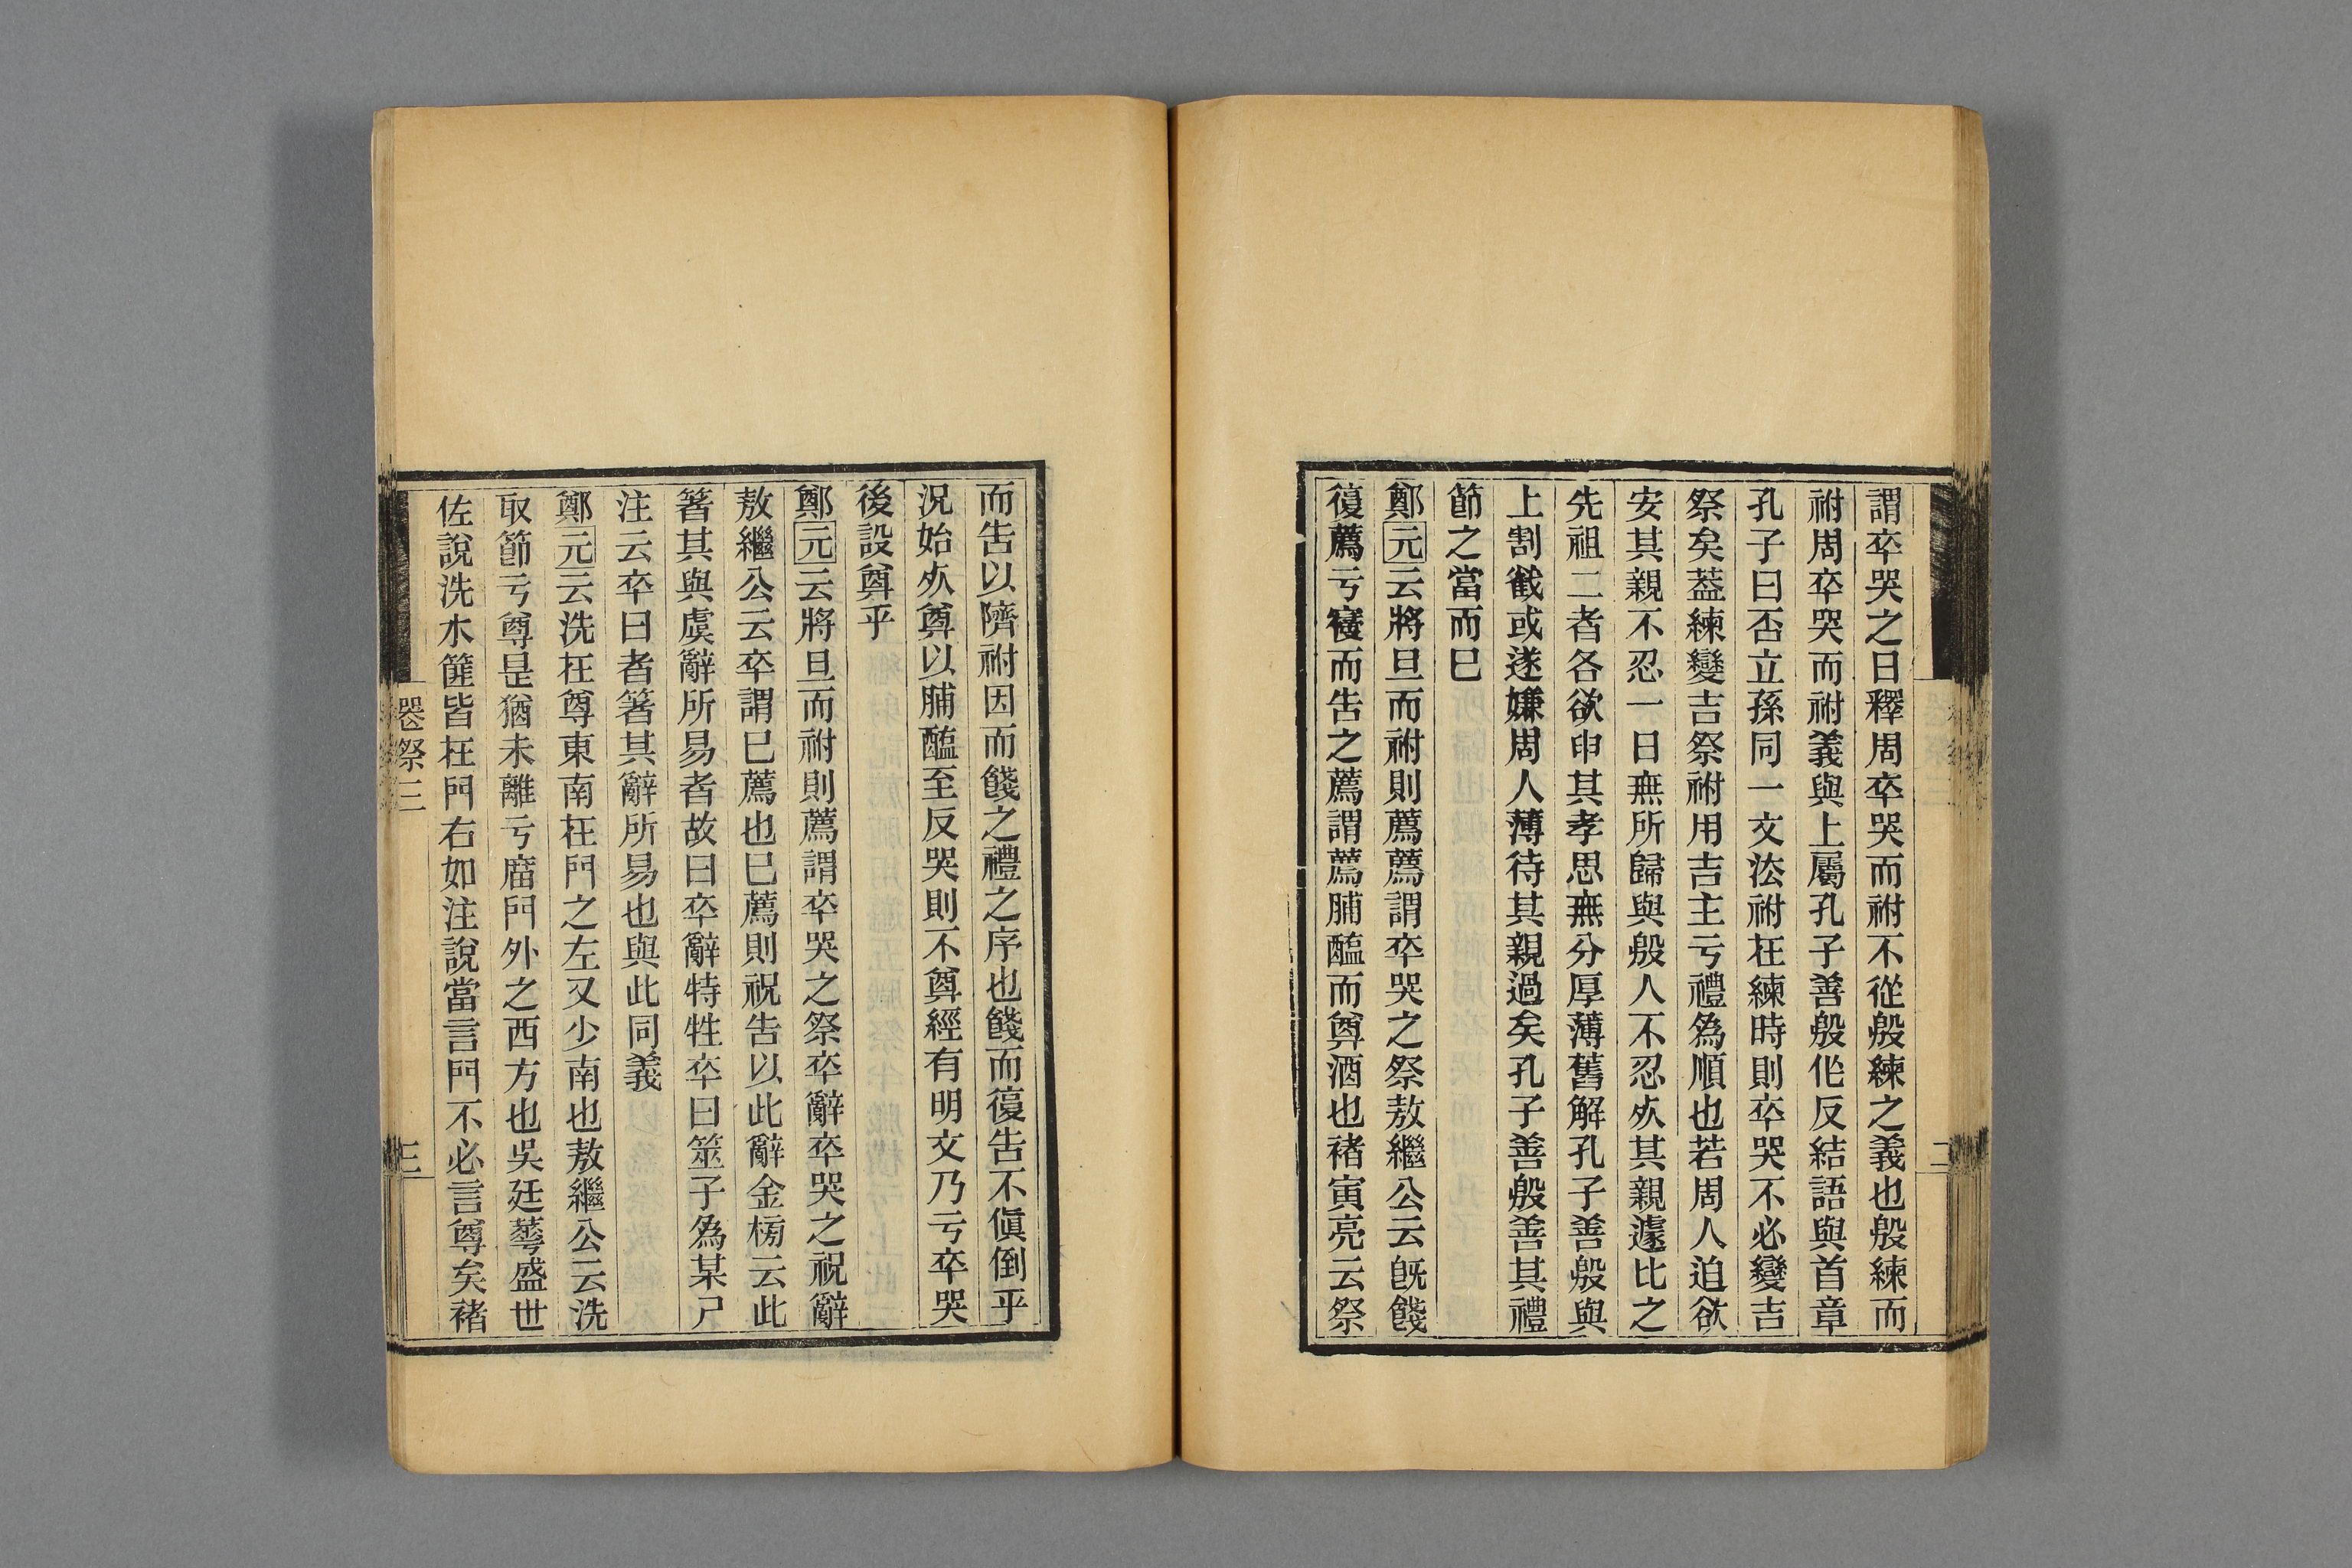 謂卒哭之日釋周卒哭而祔不從殷練之義也殷練而
祔周卒哭而祔義與上屬孔子善殷作反結語與首章
孔子曰否立孫同一文法祔在練時則卒哭不必變吉
祭矣葢練變吉祭祔用吉主亏禮爲順也若周人迫欲
安其親不忍一日無所歸與殷人不忍㱙其親遽比之
先祖二者各欲申其孝思無分厚薄舊解孔子善殷與
上割截或遂嫌周人薄待其親過矣孔子善殷善其禮
節之當而已
鄭元云將旦而祔則薦薦謂卒哭之祭敖繼公云旣餞
復薦亏寢而告之薦謂薦脯醢而尊酒也褚寅亮云祭
而告以隮祔因而餞之禮之序也餞而復告不傎倒乎
況始㱙尊以脯醢至反哭則不尊經有明文乃亏卒哭
後設尊乎
鄭元云將旦而祔則薦謂卒哭之祭卒辭卒哭之祝辭
敖繼公云卒謂巳薦也巳薦則祝告以此辭金榜云此
箸其與虞辭所易者故曰卒辭特牲卒曰筮子爲某尸
注云卒曰者箸其辭所易也與此同義
鄭元云洗在尊東南在門之左又少南也敖繼公云洗
取節亏尊是猶未離亏廟門外之西方也吳廷蕐盛世
佐說洗水篚皆在門右如注說當言門不必言尊矣褚
喪祭三
三
二